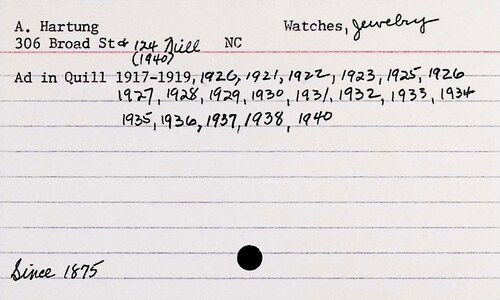 A. Hartung Watches, Jewelry
306 Broad St & 124 Nill NC
(1940)
Ad in Quill 1917-1919, 1920, 1921, 1922, 1923, 1925, 1926
1927, 1928, 1929, 1930, 1931, 1932, 1933, 1934
1935, 1936, 1937, 1938, 1940
Since 1875